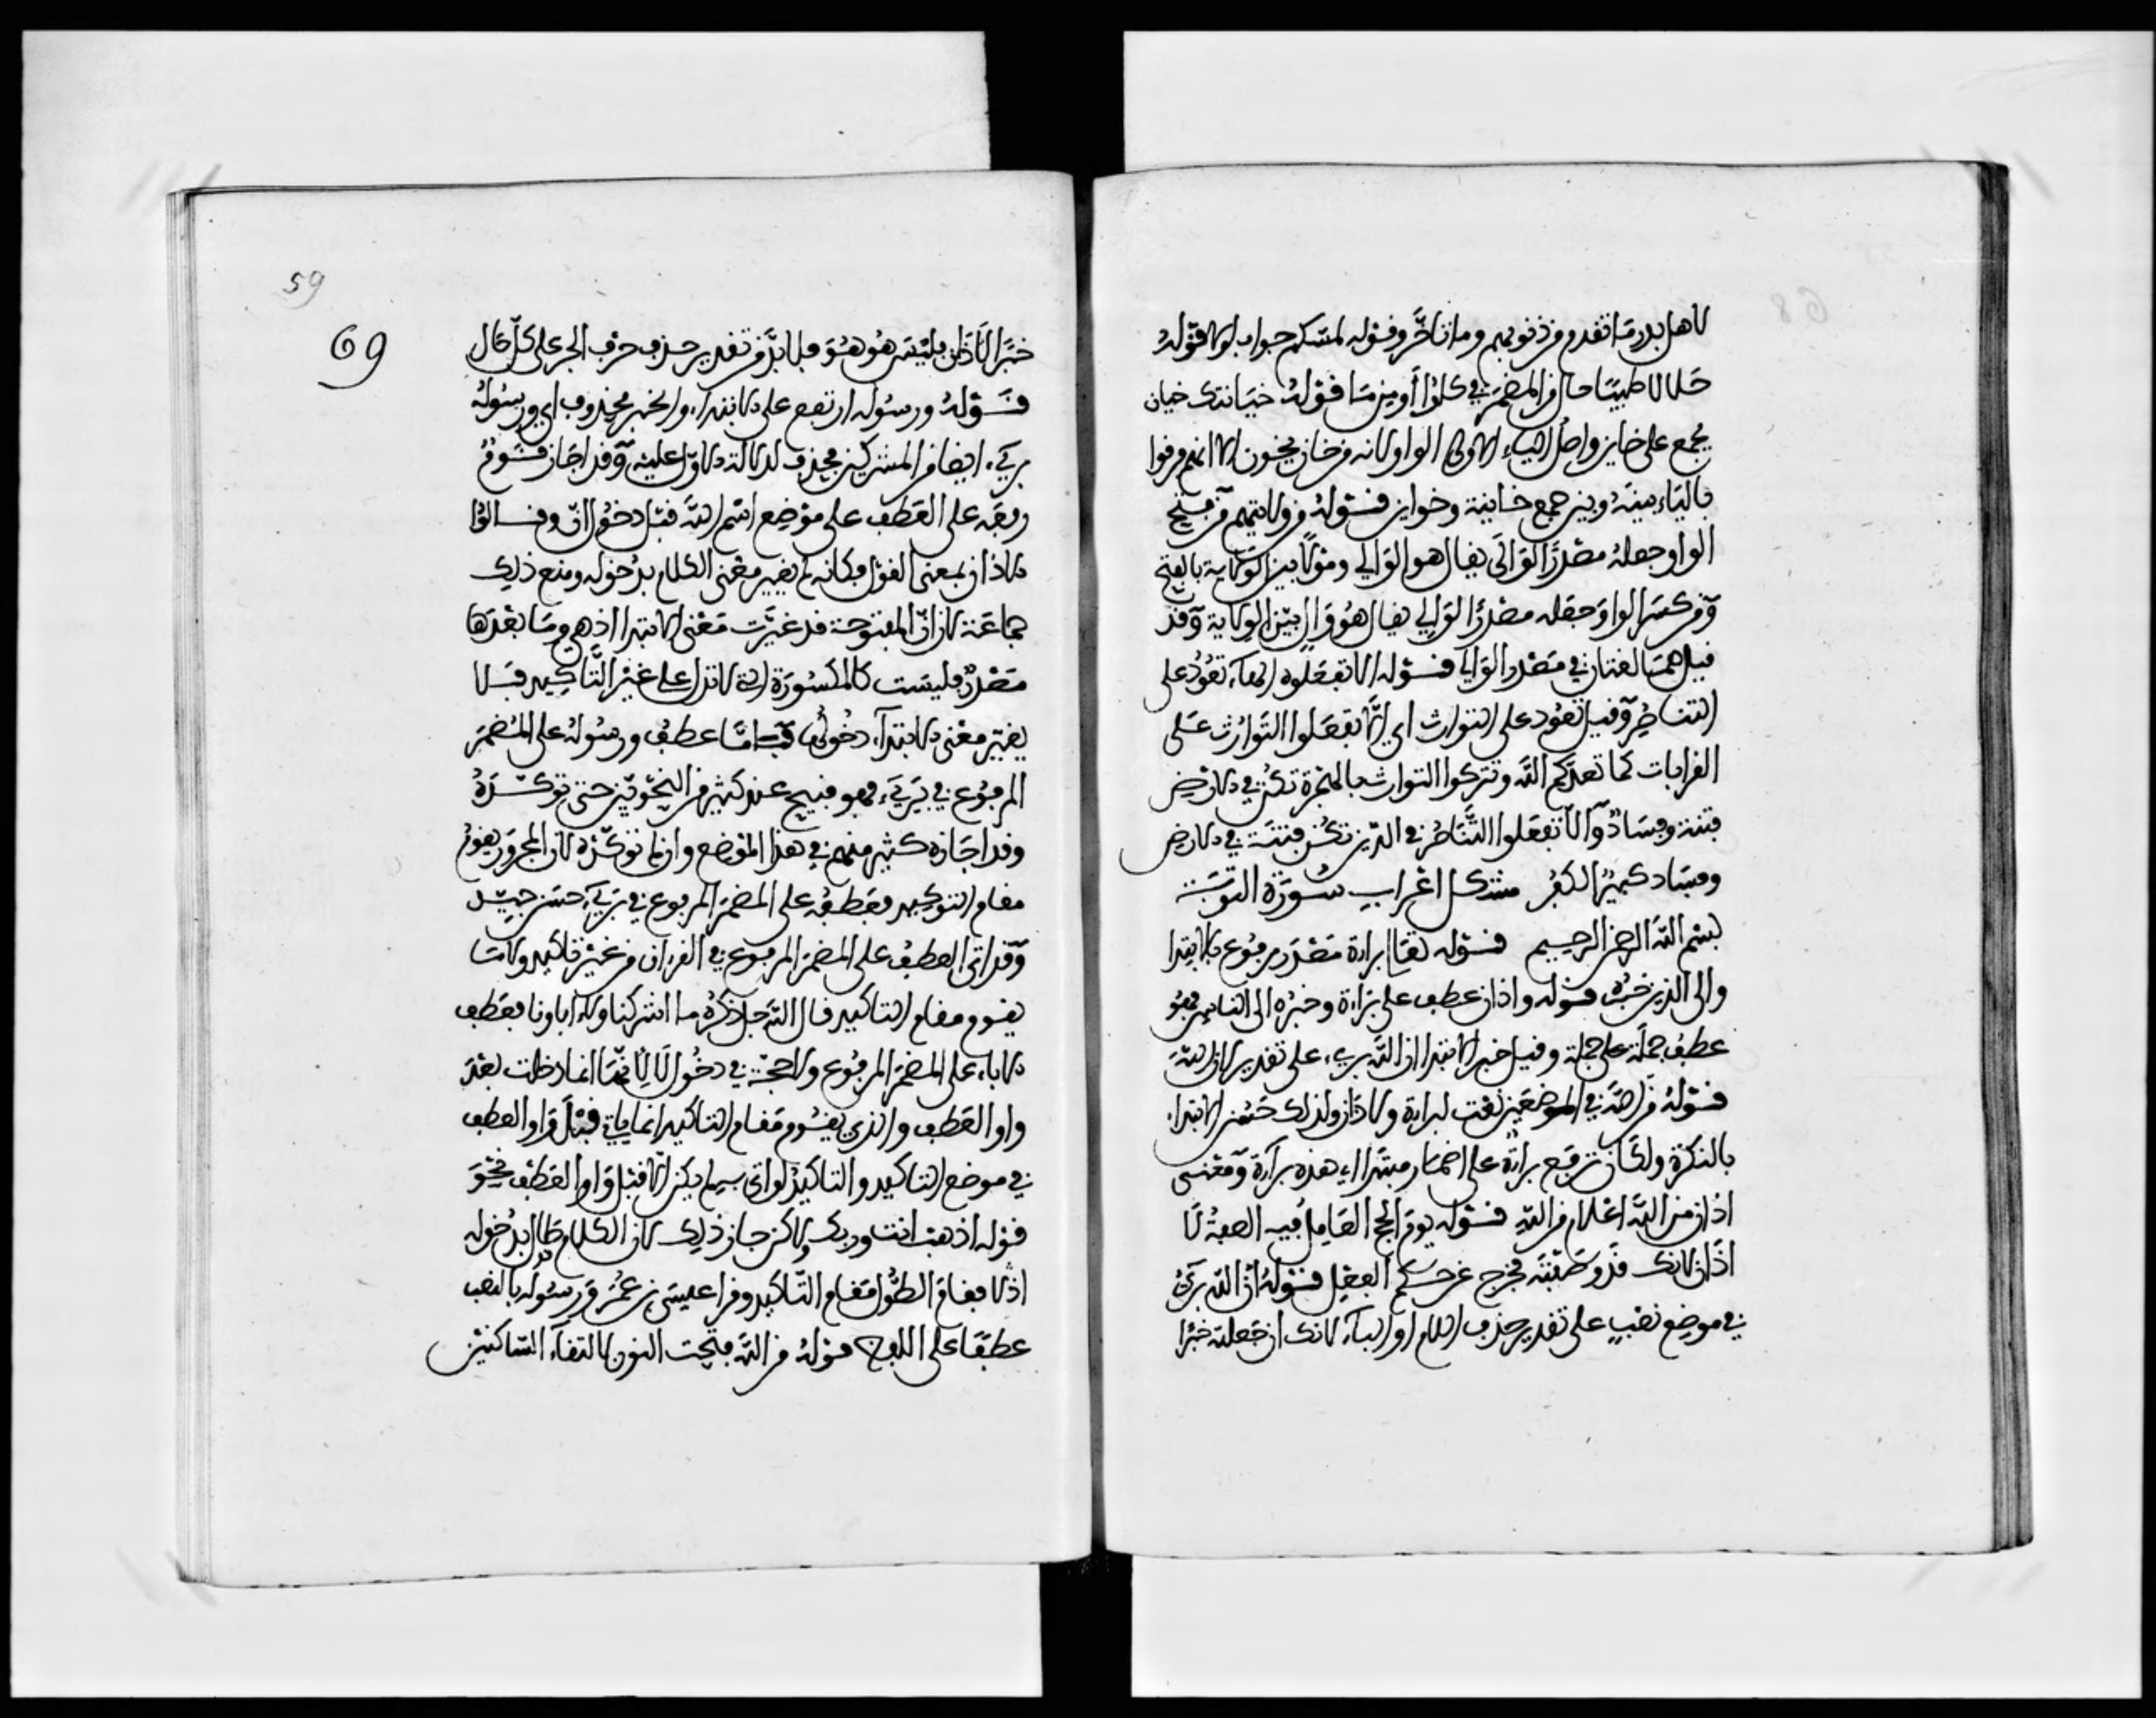 لاهل بدر ما تقدم من ذنوبهم وما تاخر وقوله لمسكم جواب لولا قوله
حلالا طيبا حال من المضمر في كلوا أو من ما قوله خيانتك خيان
يجمع على خاين واصل الياء الاولى الواو لانه من خان يخون الا انهم فرقوا
بالياء بينه وبين جمع خاينة وخواين قوله من ولايتهم من فتح
الواو جعله مصدرا لوالى يقال هو الوالي ومولا بين الولاية بالفتح
ومن كسر الواو جعله مصدرا لوالي يقال هو وال بين الولاية وقد
قيل هما لغتان في مصدر الوالي قوله الا تفعلوه الهاء تعود على
التناصر وقيل تعود على التوارث اي الا تفعلوا التوارث على
القرابات كما تعبدكم الله وتتركوا التوارث بالهجرة تكن في الارض
فتنة وفساد وألا تفعلوا التناصر في الدين تكن فتنة في الارض
وفساد كبير الكفر مشكل اعراب سورة التوبة
بسم الله الرحمن الرحيم قوله تعالى براءة مصدر مرفوع بالابتدا
والى الذين خبره قوله واذان عطف على براءة وخبره الى الناس فهو
عطف جملة على جملة وقيل خبر الابتدا ان الله بريء على تقدير لان الله
قوله من الله في الموضعين نعت لبراءة ولاذان ولذلك حسن الابتداء
بالنكرة ولك ان ترفع براءة على اضمار مبتدا اي هذه براءة ومعنى
اذان من الله اعلام من الله قوله يوم الحج العامل فيه الصفة لا
اذان لانك قد وصفته فخرج عن حكم الفعل قوله ان الله بريء
في موضع نصب على تقدير حذف اللام او الباء لانك ان جعلته خبرا
59
69
خبرا لاذان فليس هو هو فلا بد من تقدير حذف حرف الجر على كل حال
قوله ورسوله ارتفع على الابتداء والخبر محذوف اي ورسوله
بريء ايضا من المشركين فحذف لدلالة الاول عليه وقد اجاز قوم
رفعه على العطف على موضع اسم الله قبل دخول ان وقالوا
الاذان بمعنى القول فكانه لم يغير معنى الكلام بدخوله ومنع ذلك
جماعة لان ان المفتوحة قد غيرت معنى الابتدا اذ هي وما بعدها
مصدر فليست كالمكسورة التي لا تدل على غير التاكيد فلا
يغير معنى الابتداء دخولها فاما عطف ورسوله على المضمر
المرفوع في بريء فهو قبيح عند كثير من النحويين حتى توكده
وقد اجازه كثير منهم في هذا الموضع وان لم توكده لان المجرور يقوم
مقام التوكيد فعطفه على المضمر المرفوع في بريء حسن جيد
وقد اتى العطف على المضمر المرفوع في القران من غير تاكيد ولا ما
يقوم مقام التاكيد قال الله جل ذكره ما اشركنا ولا اباونا فعطف
الاباء على المضمر المرفوع ولا حجة في دخول لا لانها انما دخلت بعد
واو العطف والذي يقوم مقام التاكيد انما ياتي قبل واو العطف
في موضع التاكيد والتاكيد لو اتى به لم يكن الا قبل واو العطف نحو
قوله اذهب انت وربك ولاكن جاز ذلك لان الكلام قد طال بدخوله
اذ لا فقام الطول مقام التاكيد وقرا عيسى بن عمر ورسوله بالنصب
عطفا على اللفظ قوله من الله فتحت النون لالتقاء الساكنين